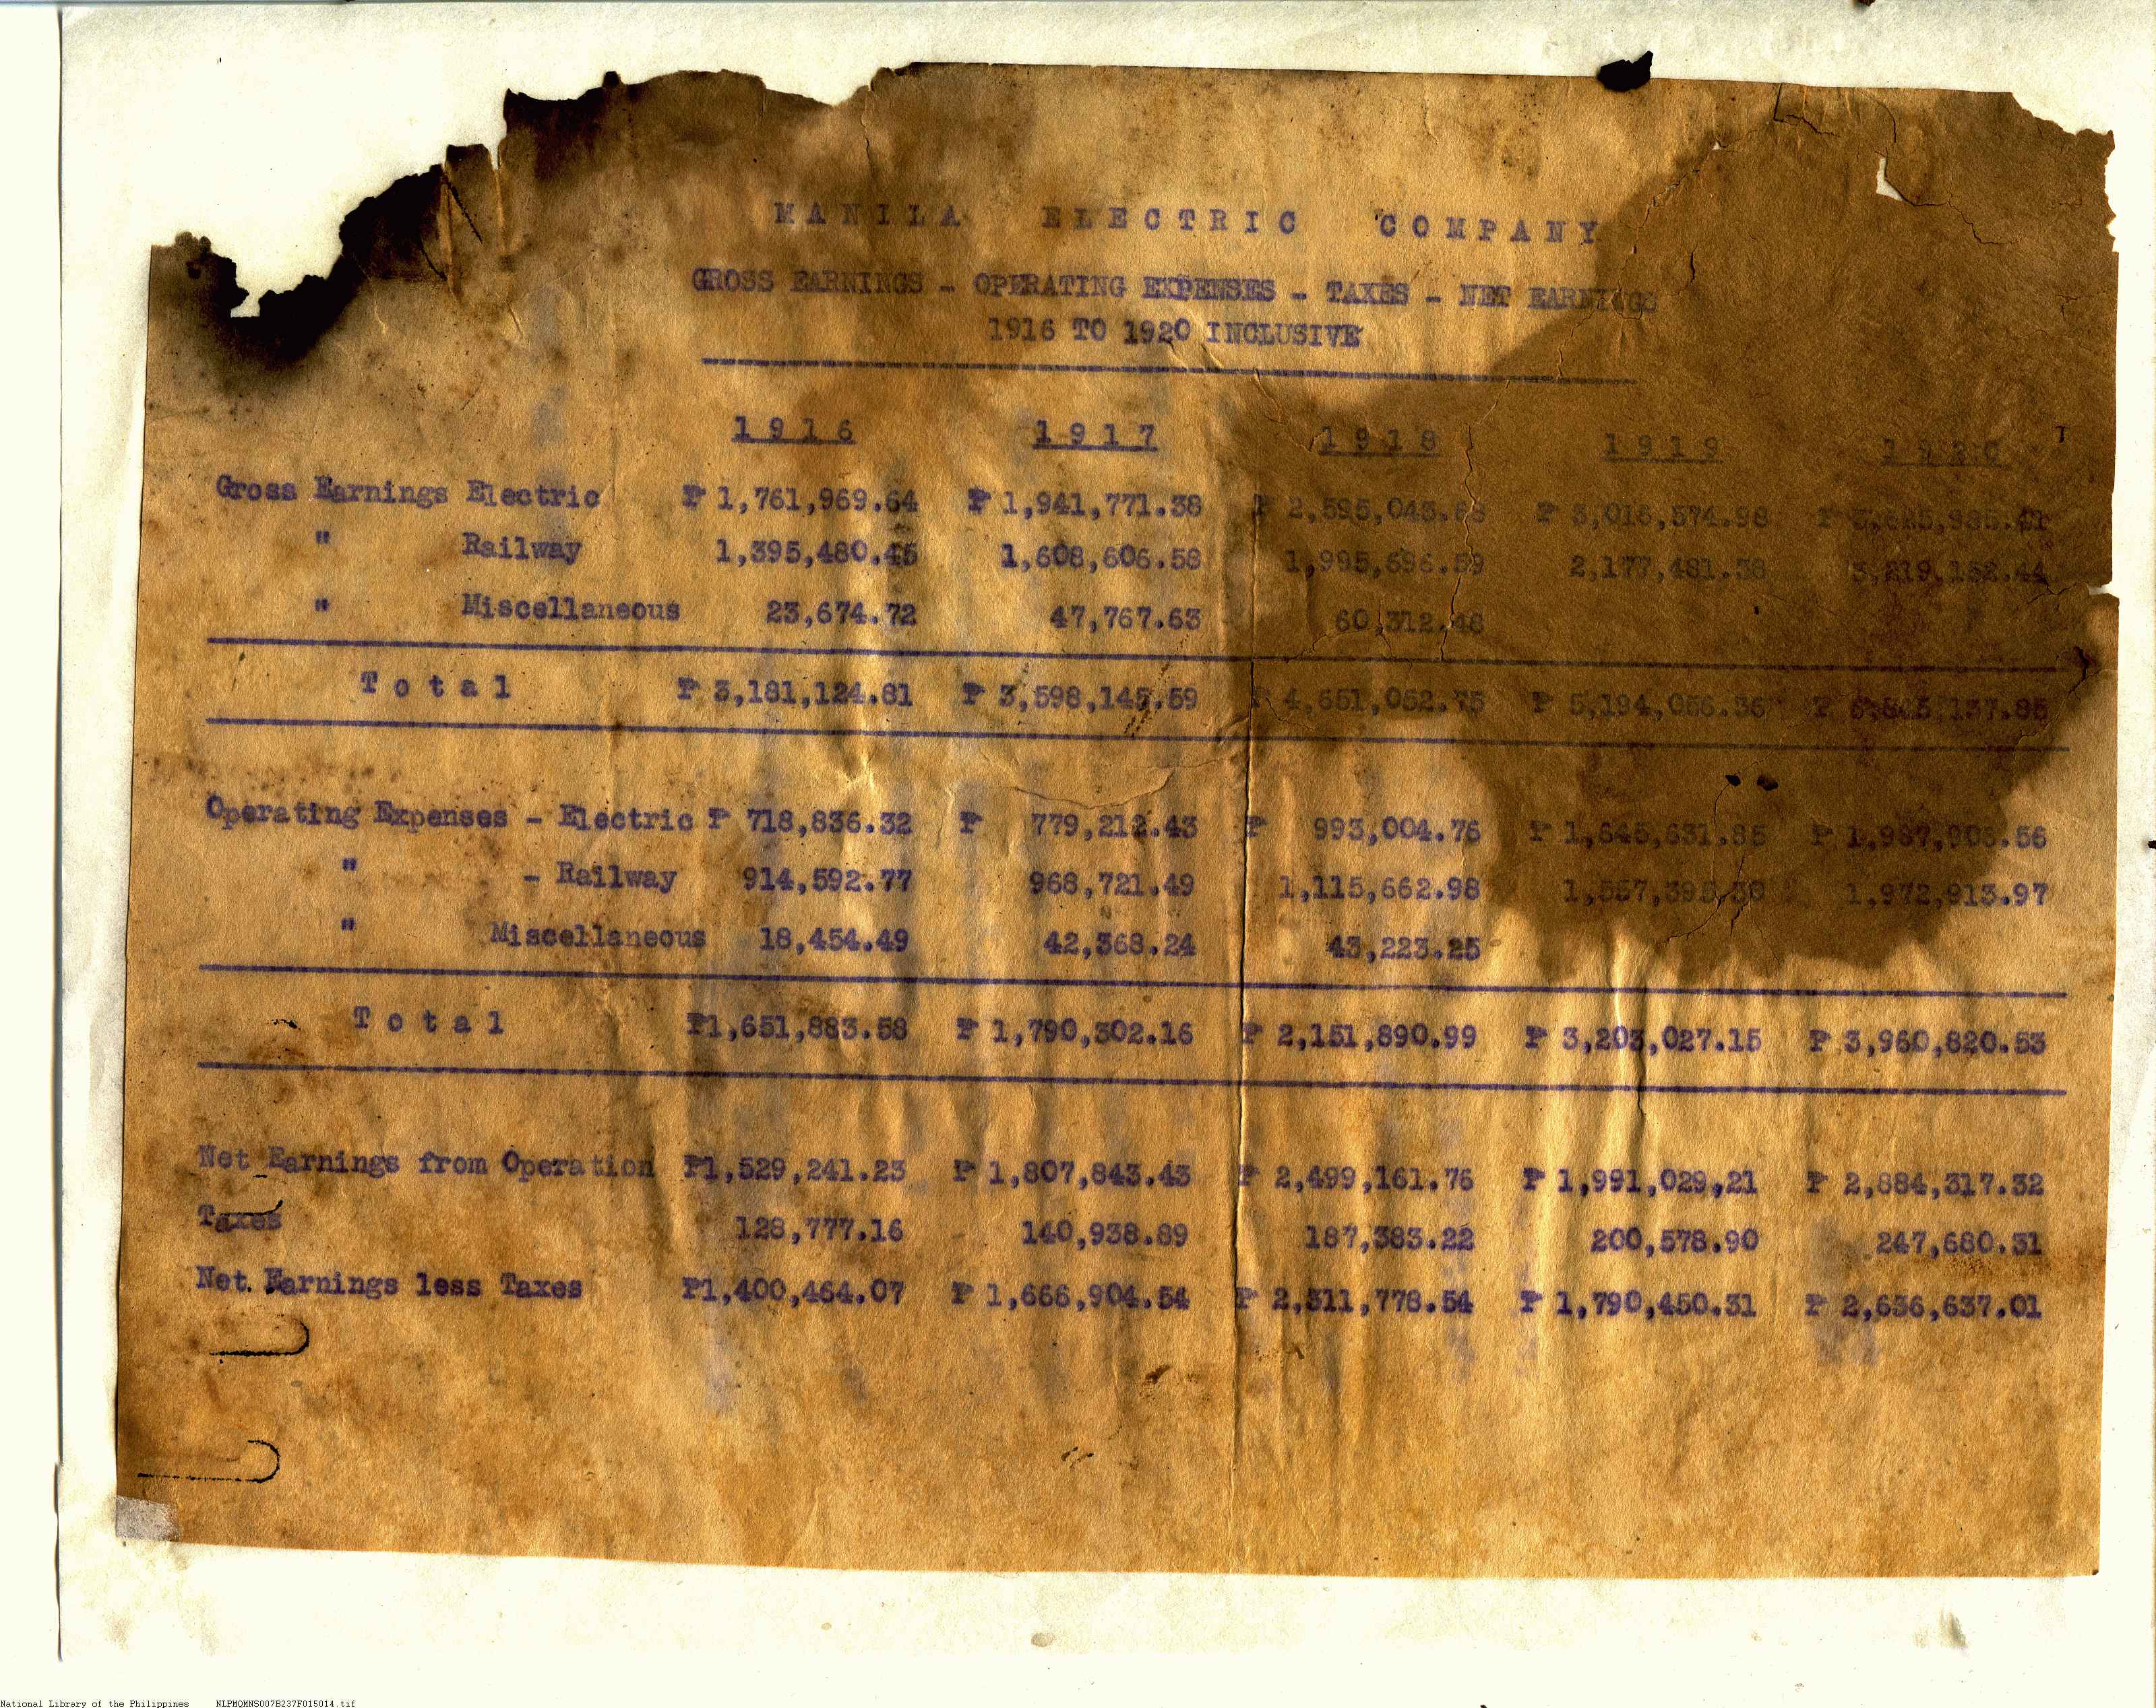 MANILA ELECTRIC COMPANY
GROSS EARNINGS - OPERATING EXPENSES - TAXES - NET EARNINGS
1916 TO 1920 INCLUSIVE
1916 1917 1918 1919 1920
Gross Earnings Electric ₱ 1,761,969.64 ₱ 1,941,771.38 ₱ 2,595,043.68 ₱ 3,016,574.98 ₱ 3,625,985.41
" Railway 1,395,480.45 1,608,606.58 1,995,696.59 2,177,481.38 3,219,152.44
" Miscellaneous 23,674.72 47,767.63 60,312.48
Total ₱ 3,181,124.81 ₱ 3,598,145.59 ₱ 4,651,052.75 ₱ 5,194,056.36 ₱ 6,845,137.85
Operating Expenses - Electric ₱ 718,836.32 ₱ 779,212.43 ₱ 993,004.76 ₱ 1,645,631.85 ₱ 1,987,906.56
" - Railway 914,592.77 968,721.49 1,115,662.98 1,557,395.30 1,972,913.97
" Miscellaneous 18,454.49 42,368.24 43,223.25
Total ₱1,651,883.58 ₱ 1,790,302.16 ₱ 2,151,890.99 ₱ 3,203,027.15 ₱ 3,960,820.53
Net Earnings from Operation ₱1,529,241.23 ₱ 1,807,843.43 ₱ 2,499,161.76 ₱ 1,991,029,21 ₱ 2,884,317.32
Taxes 128,777.16 140,938.89 187,383.22 200,578.90 247,680.31
Net Earnings less Taxes ₱1,400,464.07 ₱ 1,666,904.54 ₱ 2,311,778.54 ₱ 1,790,450.31 ₱ 2,636,637.01
National Library of the Philippines NLPMQMNS007B237F015014.tif